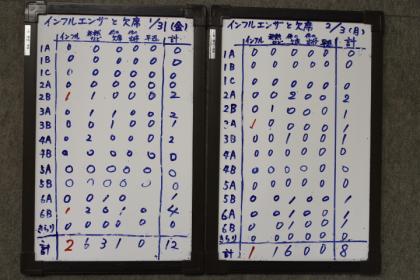 インフルエンザと欠席 1/31(金)
インフル 計
1A 0 0 0 0 0 0
1B 0 0 0 0 0 0
1C 0 0 0 0 0 0
2A 0 0 2 0 0 2
2B 1
3A 0 1 1 0 0 2
3B 0 1 0 0 0 1
4A 0 2 0 0 0 2
4B 0 0 0 0 0 0
5A 0 0 0 0 0 0
5B 0 0 0 0 0 0
6A 0 0 1 0 1
6B 1 2 0 1 0 4
きらり 0 0 0 0 0 0
計 2 6 3 1 0 12
インフルエンザと欠席 2/3(月)
インフル 計
1A 0 0 0 0 0 0
1B 0 0 0 0 0 0
1C 0 0 0 0 0 0
2A 0 0 2 0 0 2
2B 0 1 0 0 0 1
3A 1 0 0 0 0 1
3B 0 0 1 0 0 1
4A 0 0 0 0 0 0
4B 0 0 0 0 0 0
5A 0 0 0 0 0 0
5B 0 0 1 0 0 1
6A 0 0 1 0 0 1
6B 0 0 1 0 0 1
きらり 0 0 0 0 0 0
計 1 1 6 0 0 8